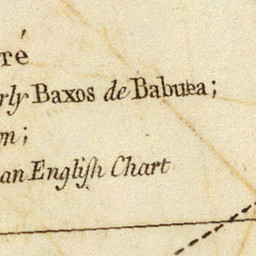 ré
rly Baxos de Babuea;
on;
an Engliſh Chart